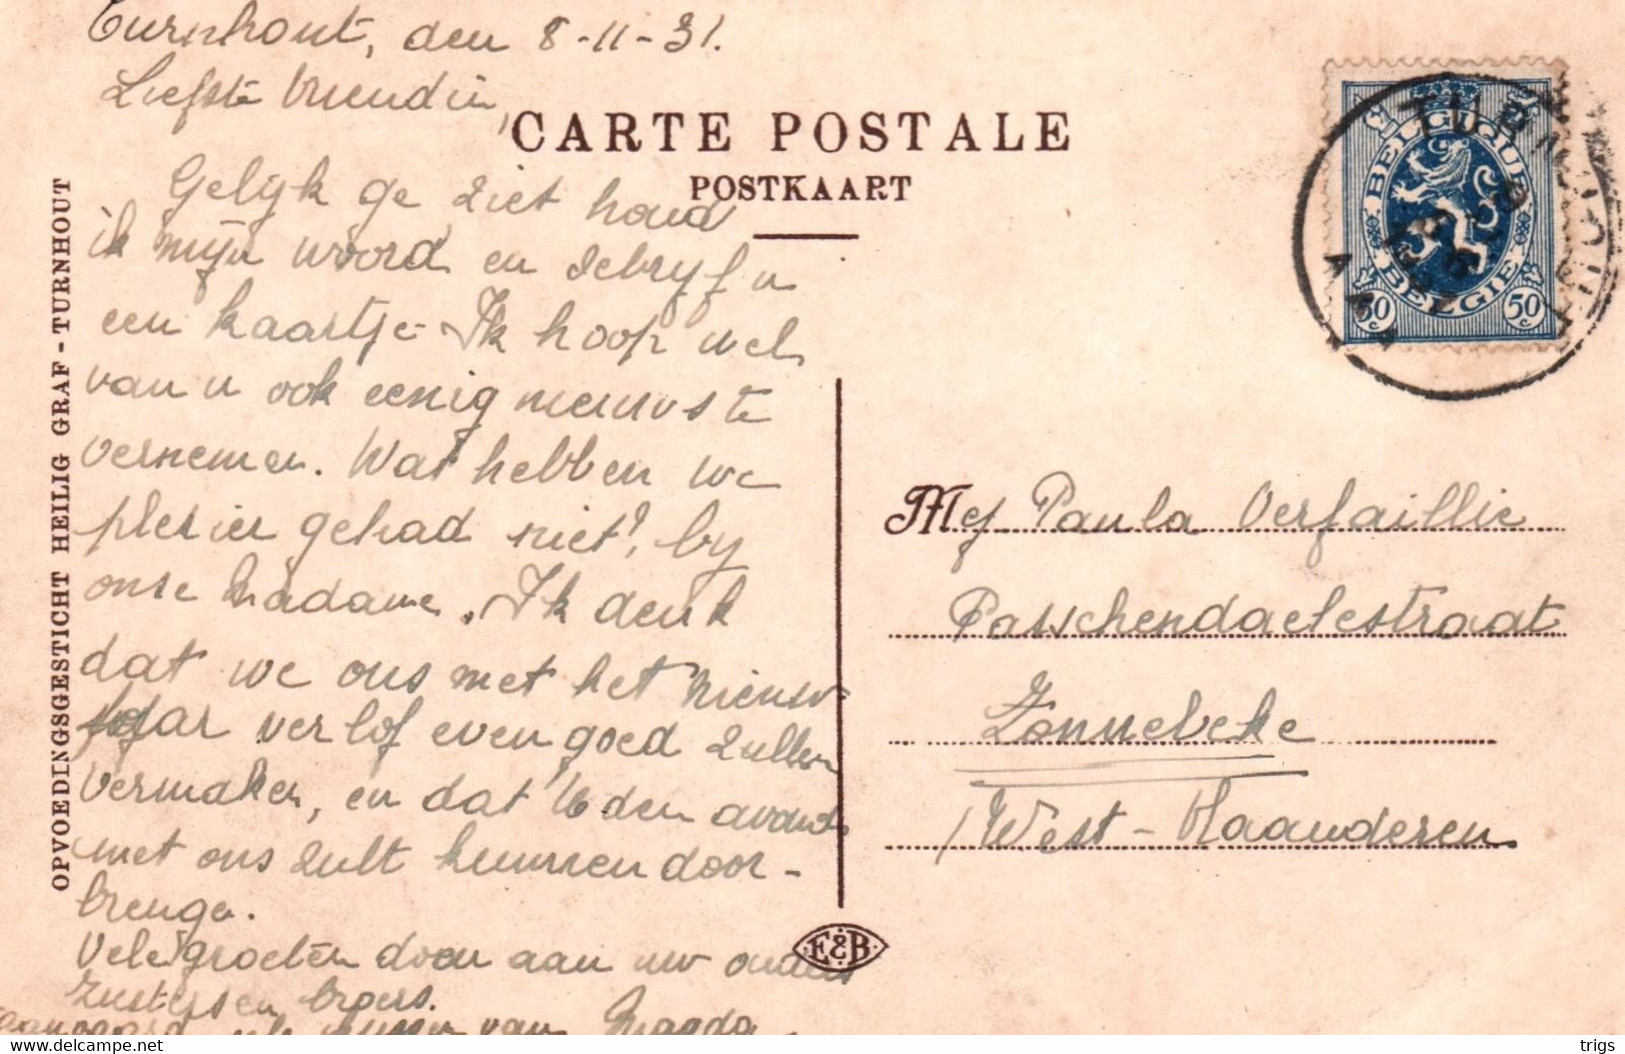 Turnhout, den 8-11-31.
Liefste Vriendin,
CARTE POSTALE
POSTKAART
Gelijk ge ziet houd
ik mijn woord en schryf u
een kaartje. Ik hoop wel
van u ook eenig nieuws te
vernemen. Wat hebben we
plezier gehad niet! by
onse Madame. Ik denk
dat we ons met het nieuw-
jaar verlof even goed zullen
vermaken, en dat U den avond
met ons zult kunnen door-
brengen.
Vele groeten doen aan uw ouders
zusters en broers.
van Magda
OPVOEDINGSGESTICHT HEILIG GRAF - TURNHOUT
E&B
BELGIQUE
BELGIE
50 c
50 c
TURNHOUT
Mej Paula Verfaillie
Passchendaelestraat
Zonnebeke
West-Vlaanderen
delcampe.net
trigs